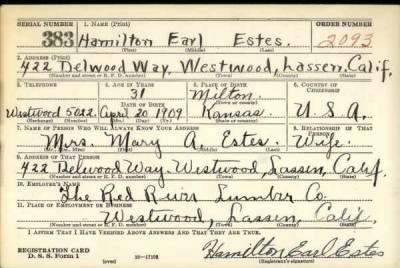 SERIAL NUMBER 1. NAME (Print) ORDER NUMBER
383 Hamilton Earl Estes. 2093
(First) (Middle) (Last)
2. ADDRESS (Print)
422 Delwood Way, Westwood, Lassen, Calif.
(Number and street or R. F. D. number) (Town) (County) (State)
3. TELEPHONE 4. AGE IN YEARS 5. PLACE OF BIRTH 6. COUNTRY OF CITIZENSHIP
31 Milton
DATE OF BIRTH (Town or county)
Westwood 5022. April 20 1909 Kansas. U.S.A.
(Exchange) (Number) (Mo.) (Day) (Yr.) (State or country)
7. NAME OF PERSON WHO WILL ALWAYS KNOW YOUR ADDRESS 8. RELATIONSHIP OF THAT PERSON
Mrs. Mary A. Estes. Wife.
(Mr., Mrs., Miss) (First) (Middle) (Last)
9. ADDRESS OF THAT PERSON
422 Delwood Way. Westwood, Lassen, Calif.
(Number and street or R. F. D. number) (Town) (County) (State)
10. EMPLOYER'S NAME
The Red River Lumber Co.
11. PLACE OF EMPLOYMENT OR BUSINESS
Westwood, Lassen, Calif.
(Number and street or R. F. D. number) (Town) (County) (State)
I AFFIRM THAT I HAVE VERIFIED ABOVE ANSWERS AND THAT THEY ARE TRUE.
Hamilton Earl Estes
REGISTRATION CARD
D. S. S. Form 1 (over) 16—17105 (Registrant's signature)